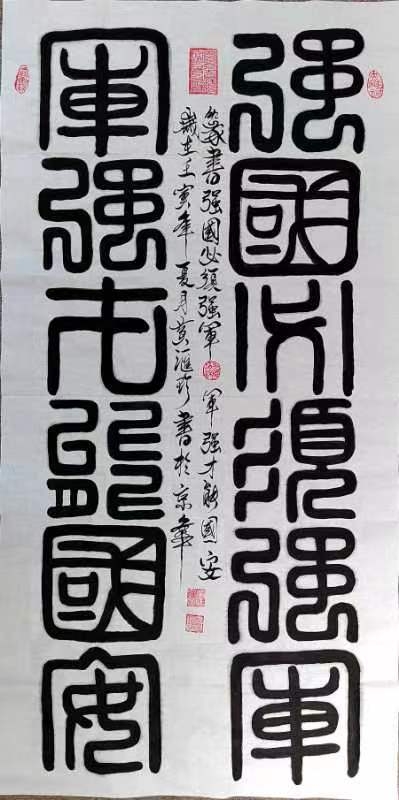 強國必須強軍
軍強才能國安
篆書强國必須强軍 軍强才能國安
歲在壬寅年夏月黄滙珍書於京華